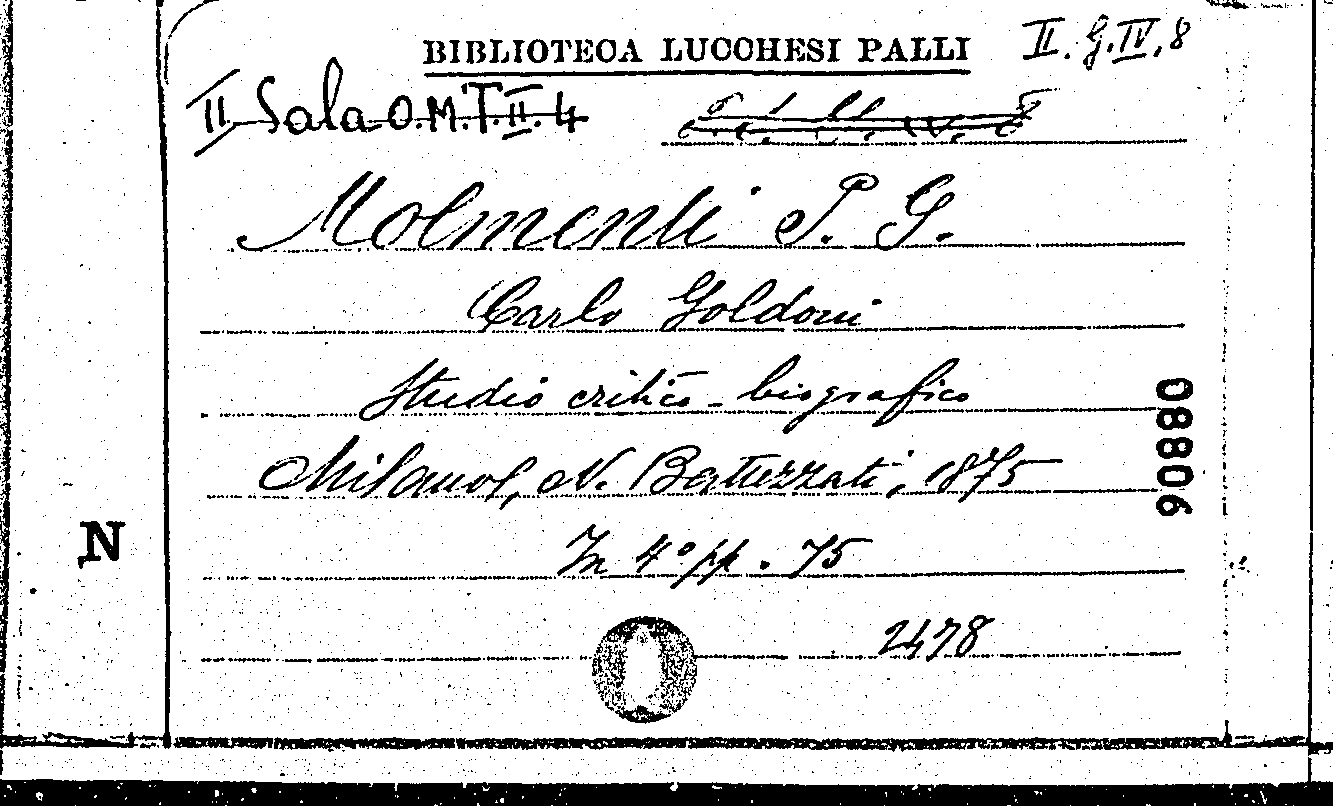 BIBLIOTECA LUCCHESI PALLI II. G. IV, 8
II Sala O.M.T.II.4
Molmenti P. G.
Carlo Goldoni
Studio critico-biografico
Milano, N. Battezzati, 1875
In 4° pp. 75
2478
08806
N